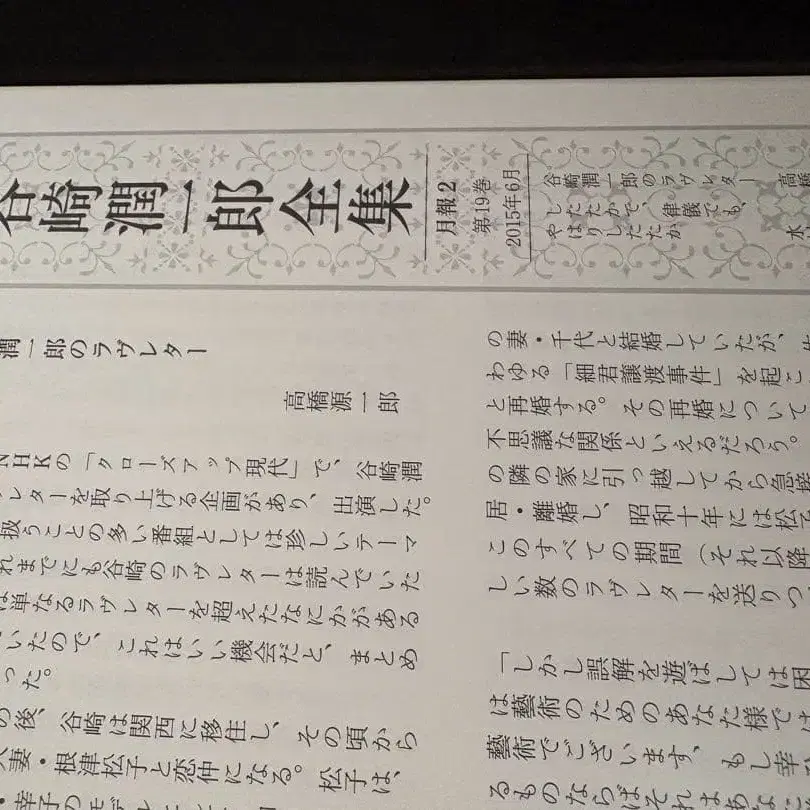 谷崎潤一郎全集
月報2
第19巻
2015年6月
谷崎潤一郎のラヴレター 高橋
したたかで、律儀でも、
やはりしたたか 水
潤一郎のラヴレター
高橋源一郎
NHKの「クローズアップ現代」で、谷崎潤
レターを取り上げる企画があり、出演した。
扱うことの多い番組としては珍しいテーマ
れまでにも谷崎のラヴレターは読んでいた
は単なるラヴレターを超えたなにかがある
ていたので、これはいい機会だと、まとめ
った。
の後、谷崎は関西に移住し、その頃から
人妻・根津松子と恋仲になる。松子は、
・幸子のモデル
の妻・千代と結婚していたが、
わゆる「細君譲渡事件」を起こ
と再婚する。その再婚について
不思議な関係といえるだろう。
の隣の家に引っ越してから急接
居・離婚し、昭和十年には松子
このすべての期間（それ以降
しい数のラヴレターを送りつ
「しかし誤解を遊ばしては困
は藝術のためのあなた様では
藝術でございます、もし幸ひ
るものならばそれはあなた